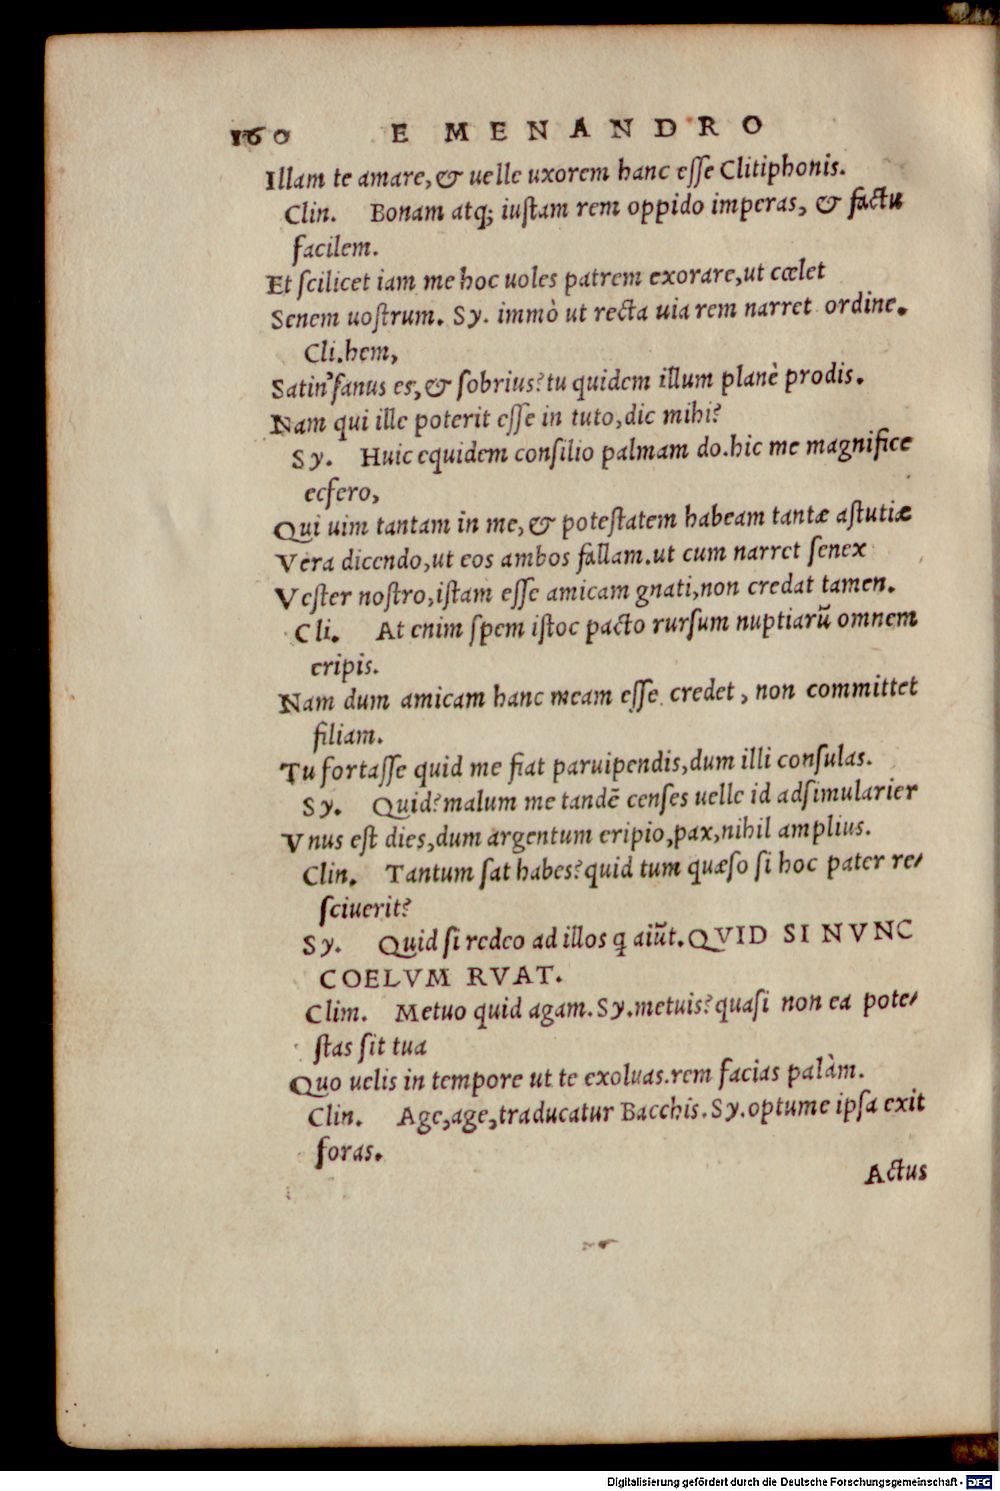 160 E MENANDRO
Illam te amare, & uelle uxorem hanc esse Clitiphonis.
Clin. Bonam atq; iustam rem oppido imperas, & factu
facilem.
Et scilicet iam me hoc uoles patrem exorare, ut cœlet
Senem uostrum. Sy. immò ut recta uia rem narret ordine.
Cli. hem,
Satin' sanus es, & sobrius? tu quidem illum planè prodis.
Nam qui ille poterit esse in tuto, dic mihi?
Sy. Huic equidem consilio palmam do. hic me magnifice
ecfero,
Qui uim tantam in me, & potestatem habeam tantæ astutiæ
Vera dicendo, ut eos ambos fallam. ut cum narret senex
Vester nostro, istam esse amicam gnati, non credat tamen.
Cli. At enim spem istoc pacto rursum nuptiarũ omnem
eripis.
Nam dum amicam hanc meam esse credet, non committet
filiam.
Tu fortasse quid me fiat paruipendis, dum illi consulas.
Sy. Quid? malum me tandẽ censes uelle id adsimularier
Vnus est dies, dum argentum eripio, pax, nihil amplius.
Clin. Tantum sat habes? quid tum quæso si hoc pater re-
sciuerit?
Sy. Quid si redeo ad illos q aiũt. QVID SI NVNC
COELVM RVAT.
Clim. Metuo quid agam. Sy. metuis? quasi non ea pote-
stas sit tua
Quo uelis in tempore ut te exoluas. rem facias palàm.
Clin. Age, age, traducatur Bacchis. Sy. optume ipsa exit
foras.
Actus
Digitalisierung gefördert durch die Deutsche Forschungsgemeinschaft - DFG